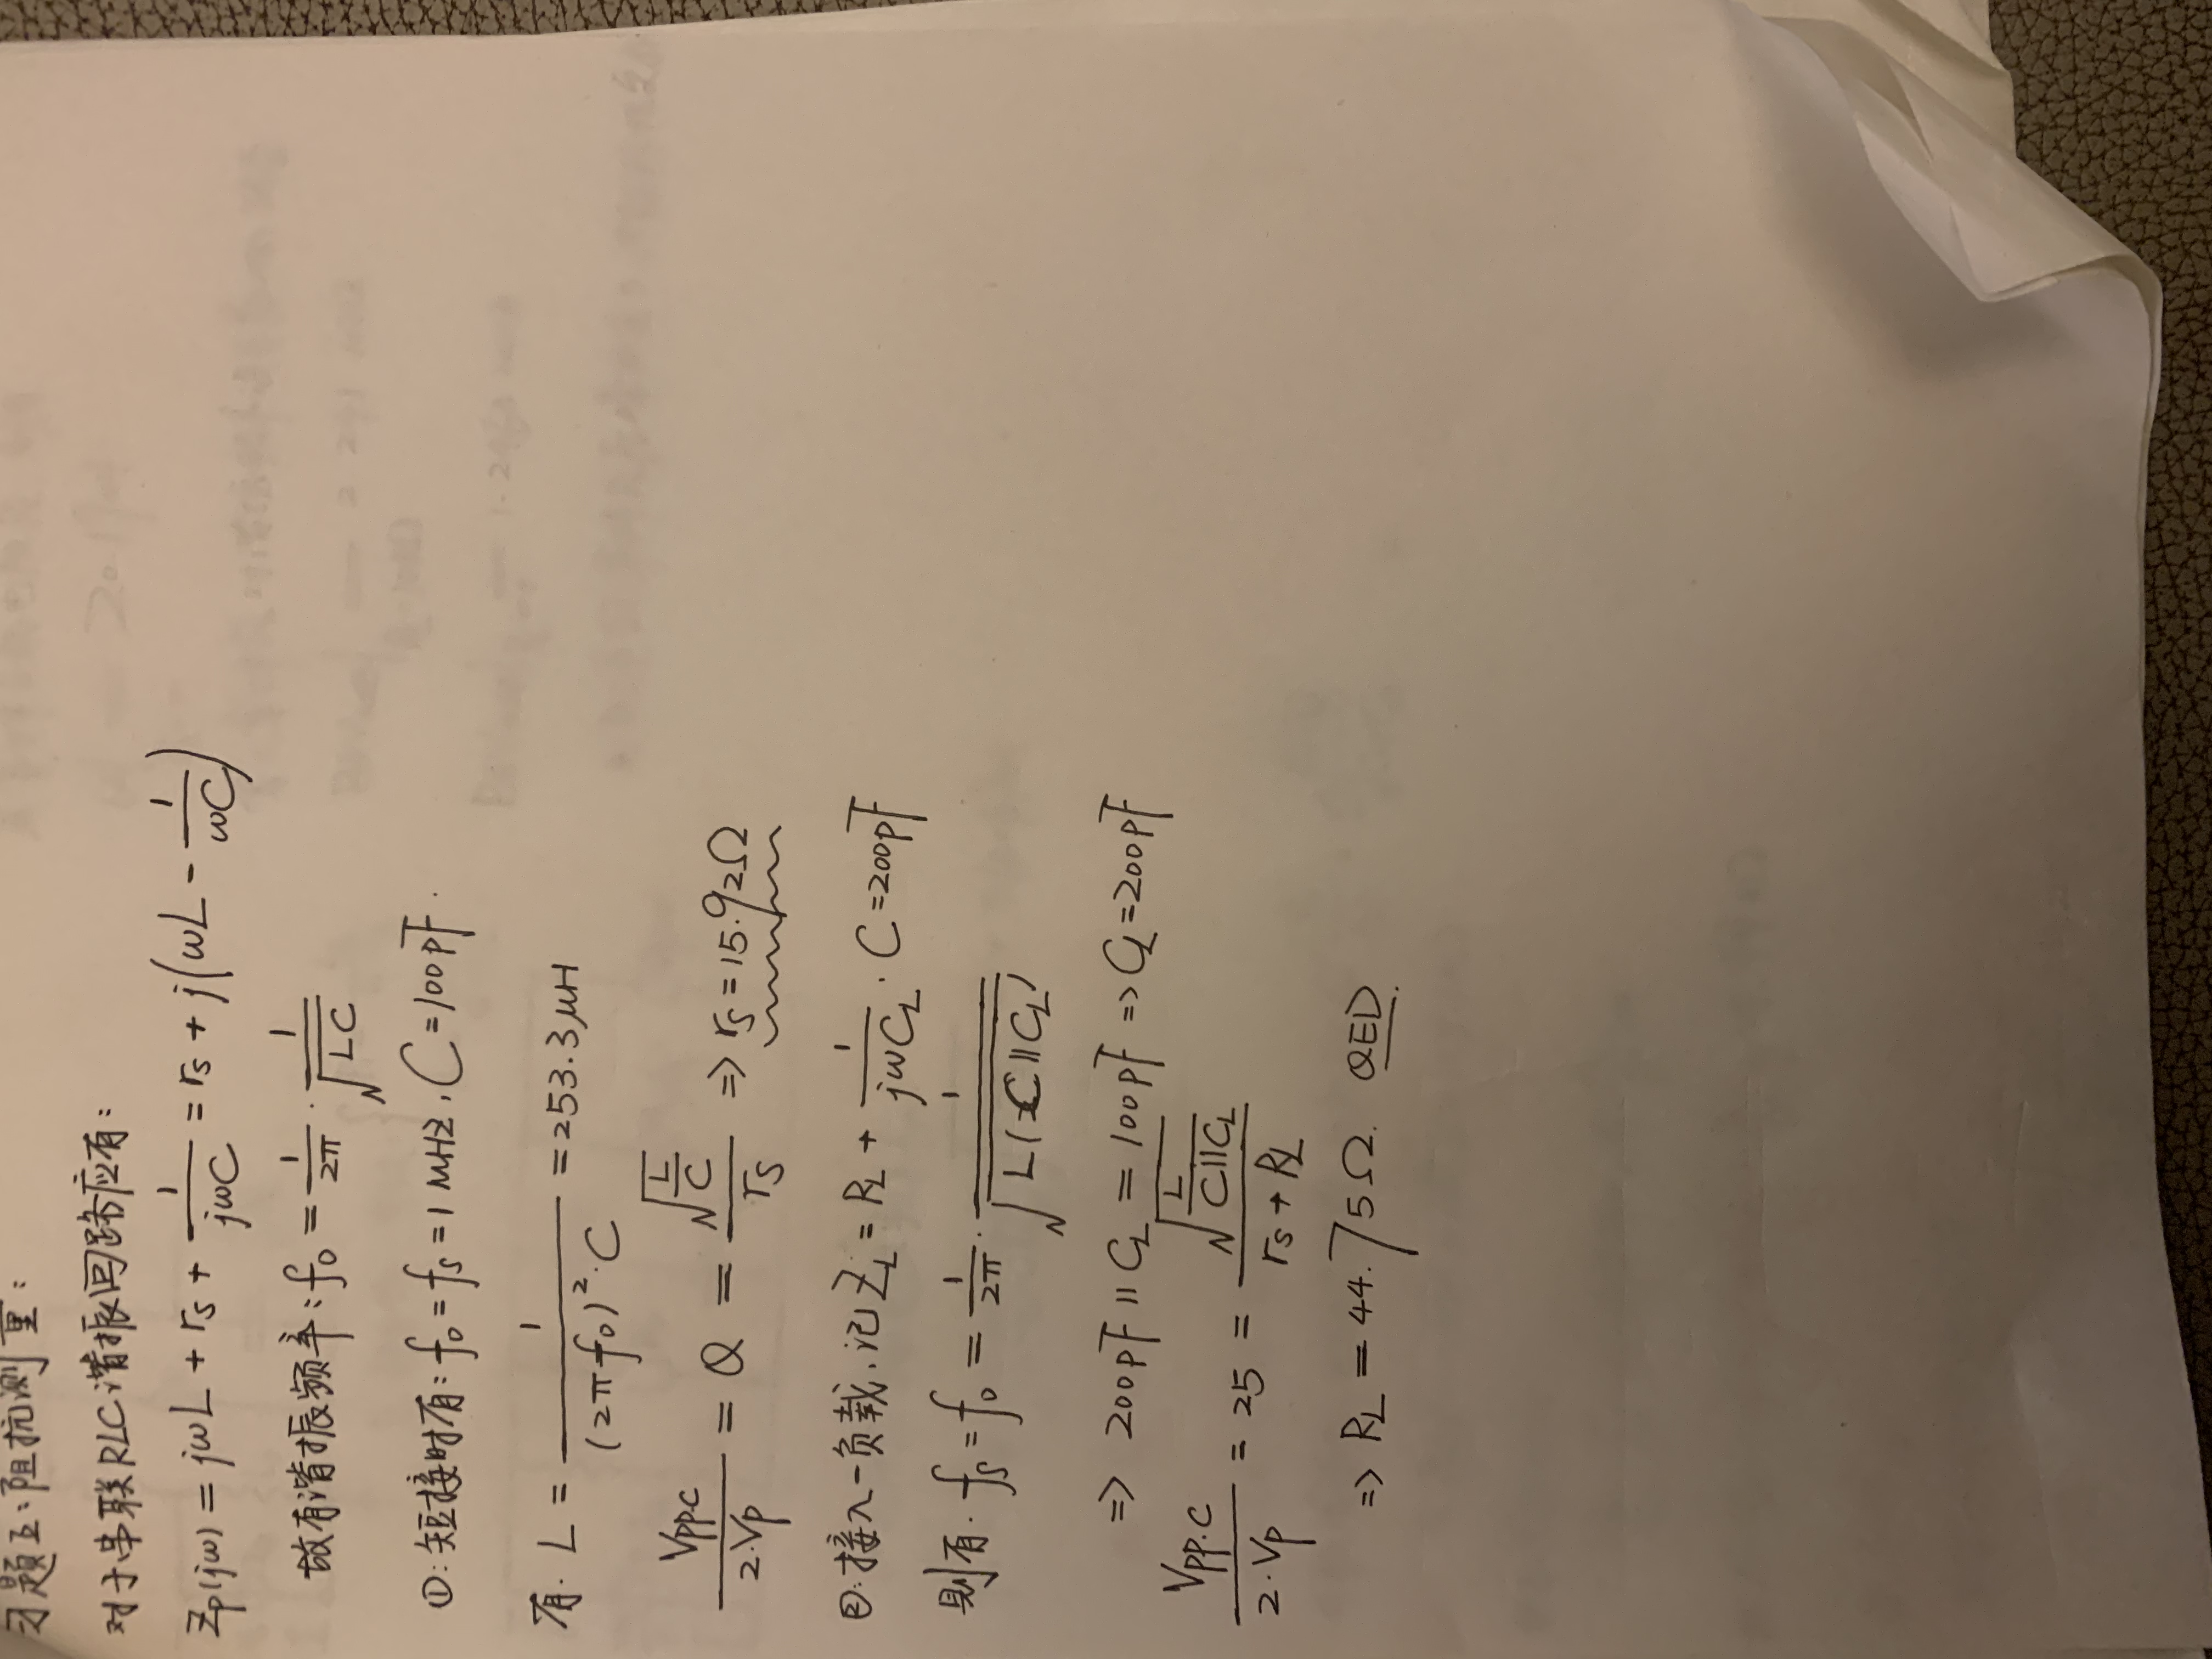 习题五:阻抗测量:
对于串联RLC谐振回路应有:
Zp(jω) = jωL + rs + 1/(jωC) = rs + j(ωL - 1/(ωC))
故有谐振频率: f0 = 1/(2π) · 1/√(LC)
①: 短接时有: f0 = fs = 1 MHz, C = 100pF.
有. L = 1/((2πf0)²·C) = 253.3μH
Vpp.c/(2·Vp) = Q = √(L/C)/rs ⇒ rs = 15.92Ω
②: 接入一负载, 记 ZL = RL + 1/(jωCL). C = 200pF
则有. fs = f0 = 1/(2π) · 1/√(L(C∥CL))
⇒ 200pF ∥ CL = 100pF ⇒ CL = 200pF
Vpp.c/(2·Vp) = 25 = √(L/(C∥CL))/(rs + RL)
⇒ RL = 44.75Ω. QED.